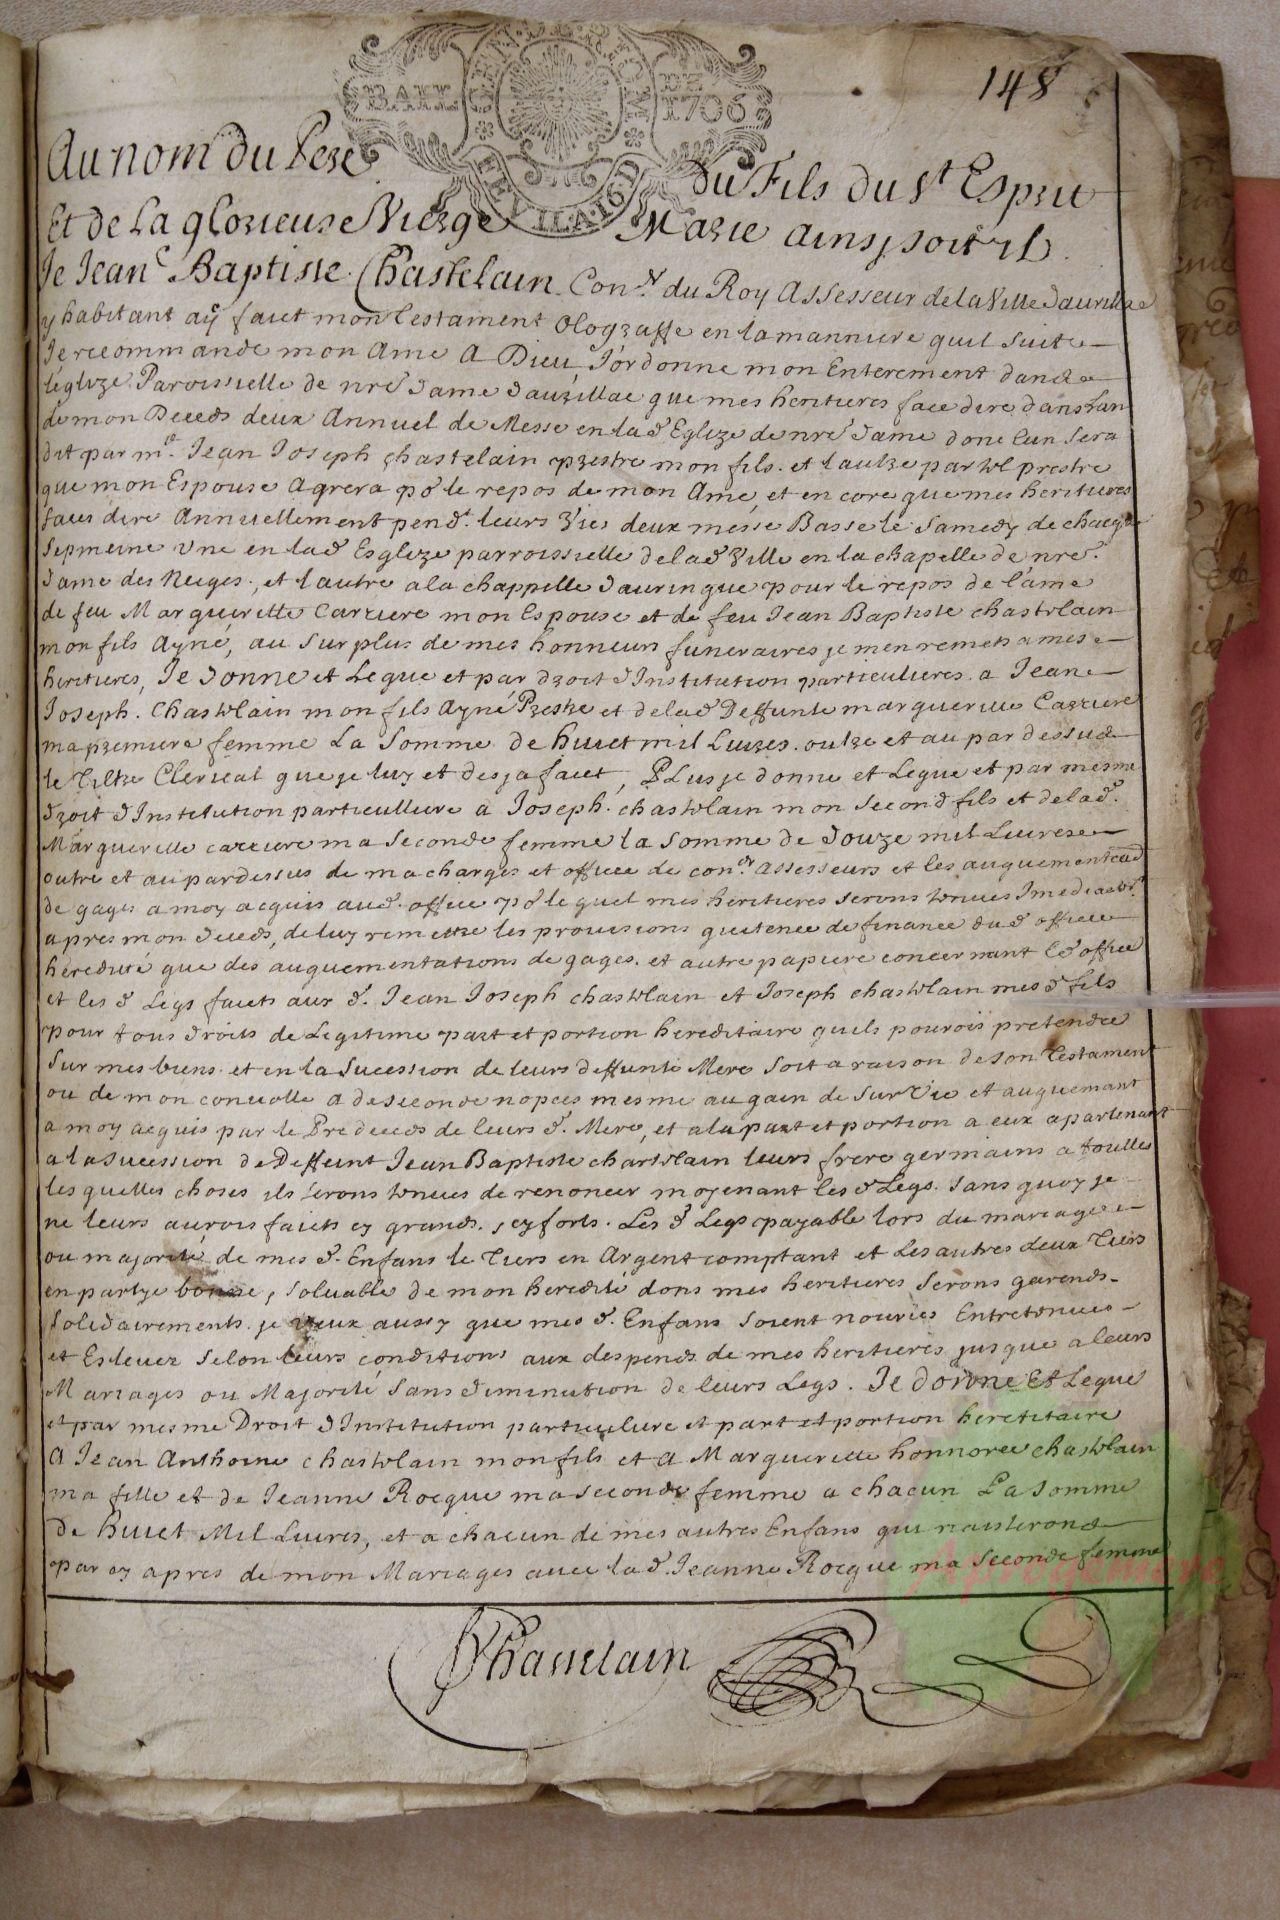 148
BAIL GEN. DE. RIOM DE 1706
FEVILA. 16. D
Au nom du Pere du Fils du St Esprit
Et de La glorieuse Vierge Marie ainsy soit il.
Je Jean Baptiste Chastelain Coner du Roy Assesseur de la Ville daurillac
y habitant ay faict mon testament Ologzaffe en la manniere quil suit
Je recommande mon Ame A Dieu, J'ordonne mon Enterement dans
léglize Paroissielle de nre dame dauzillac que mes heritieres face dire dans lan
de mon Deceds deux Annuel de Messe en lad Eglize de nre dame donc lun sera
dit par mre Jean Joseph Chastelain prestre mon fils. et lautre par tel prestre
que mon Espouse Agrera po le repos de mon Ame, et en core que mes heritieres
face dire Annuellement pendt leurs Vies deux messe Basse le Samedy de chacque
Sepmeine une en lad Esglize parroissielle de lad Ville en la chapelle de nre
dame des Neiges, et lautre a la chappelle dauringue pour le repos de l'ame
de feu Margueritte Carriere mon Espouse et de feu Jean Baptiste chastelain
mon fils Ayné, au Surplus de mes honneurs funeraires je men remets a mes
heritieres, Je donne et Legue et par droit d'Institution particulieres a Jean
Joseph Chastelain mon fils Ayné Prestre et de lad Deffunte margueritte Carriere
ma premiere femme La Somme de huict mil Livres. oultre et au par dessus
le Tiltre Clerical que je luy et desja faict, Plus je donne et Legue et par mesme
droit d'Institution particulliere a Joseph chastelain mon second fils et de lad
Marguerille carriere ma seconde femme la Somme de douze mil Livres
outre et au pardessus de ma charges et office de coner assesseurs et les auguementaõns
de gages a moy acquis aud. office po lequel mes heritieres serons tenues Imediatemt
apres mon deceds, de luy remettre les provisions quitence de finance dud office
heredité que des auguementations de gages. et autre papiere concernant led office
et les d Legs faicts aux d. Jean Joseph chastelain et Joseph chastelain mes d fils
pour tous droits de Legitime part et portion hereditaire quils pourois pretendre
Sur mes biens et en la Sucession de leurs deffunte Mere Soit a raison de son Testament
ou de mon convolle a de seconde nopces mesme au gain de Survie et auguemant
a moy acquis par le Predeceds de leurs d. Mere, et a la part et portion a eux apartenant
a la Sucession de Deffeunt Jean Baptiste chastelain leurs frere germains a toutles
les quelles choses ils serons tenues de renoncer moyenant les d Legs. Sans quoy je
ne leurs aurois faicts cy grands, cy forts. Les d Legs payable lors du mariage
ou majorité de mes d. Enfans le Tiers en Argent comptant et Les autres deux Tiers
en partye bonne, solvable de mon heredité dons mes heritieres Serons garends
Solidairements. je veux aussy que mes d. Enfans soient nouries Entretenues
et Eslevez selon leurs conditions aux despends de mes heritieres jusque a leurs
Mariages ou Majorité sans diminution de leurs Legs. Je donne Et Legue
et par mesme Droit d'Institution particuliere et part et portion heretitaire
A Jean Anthoine chastelain mon fils et A Marguerite honnoree chastelain
ma fille et de Jeanne Rocque ma seconde femme a chacun La somme
De huict Mil Livres, et a chacun de mes autres Enfans qui naisterond
par cy apres de mon Mariages avec lad. Jeanne Rocque ma seconde femme
Chastelain
Aprogemere